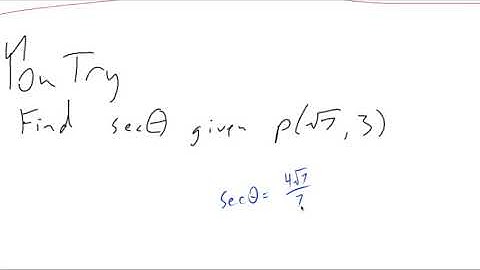 You Try
Find secθ given P(√7, 3)
secθ = 4√7/7